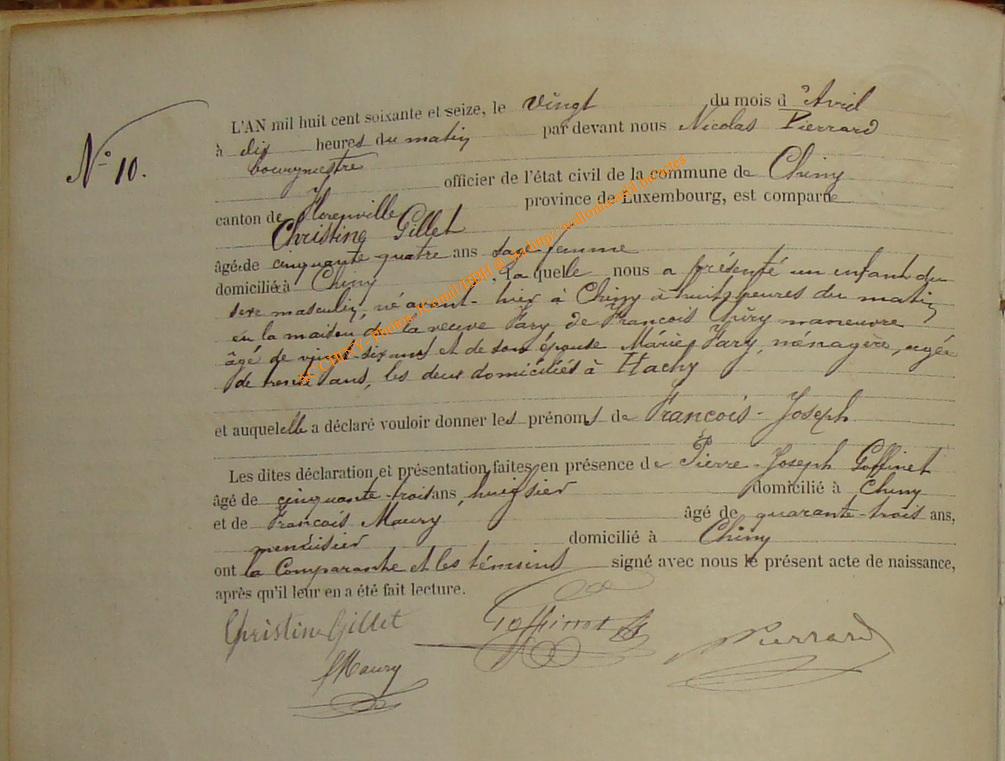 N° 10.
L'AN mil huit cent soixante et seize, le vingt du mois d'Avril
à dix heures du matin par devant nous Nicolas Pierrard
bourgmestre officier de l'état civil de la commune de Chiny
canton de Florenville province de Luxembourg, est comparue
Christine Gillet
âgée de cinquante quatre ans sage femme
domiciliée à Chiny, la quelle nous a présenté un enfant du
sexe masculin, né avant-hier à Chiny à huit heures du matin
en la maison de la veuve Fary, de François manœuvre
âgé de vingt-six ans et de son épouse Marie Fary, ménagère, agée
de trente ans, les deux domiciliés à Hachy
et auquel elle a déclaré vouloir donner les prénoms de François-Joseph
Les dites déclaration et présentation faites en présence de Pierre-Joseph Goffinet
âgé de cinquante-trois ans, huissier domicilié à Chiny
et de François Maury âgé de quarante-trois ans,
menuisier domicilié à Chiny
ont la Comparante et les témoins signé avec nous le présent acte de naissance,
après qu'il leur en a été fait lecture.
Christine Gillet Goffinet Pierrard
Maury